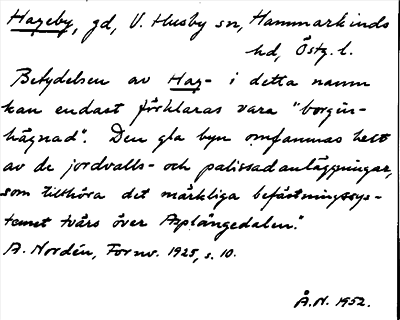 Hageby, gd, V. Husby sn, Hammarkinds
hd, Östg. l.
Betydelsen av Hag- i detta namn
kan endast förklaras vara "borgin-
hägnad". Den gla byn omfamnas helt
av de jordvalls- och palissadanläggningar,
som tillhöra det märkliga befästningssys-
temet tvärs över Asplångedalen."
A. Nordén, Fornv. 1925, s. 10.
Å.N. 1952.